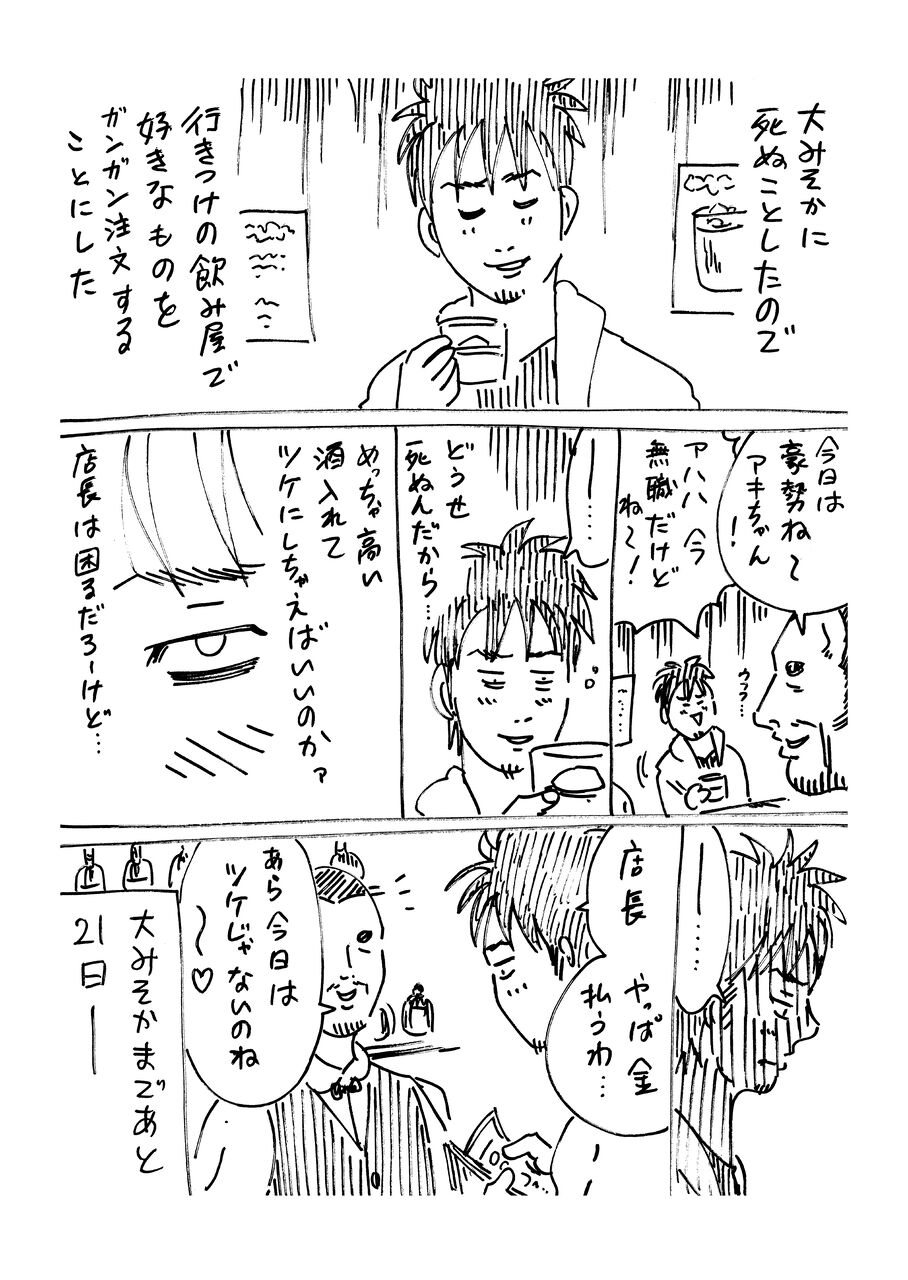 大みそかに
死ぬことしたので
行きつけの飲み屋で
好きなものを
ガンガン注文する
ことにした
今日は
豪勢ね〜
アキちゃん
!
ウフフ…
アハハ 今
無職だけど
ね〜!
……
どうせ
死ぬんだから…
めっちゃ高い
酒入れて
ツケにしちゃえばいいのかァ
店長は困るだろーけど…
……
店長
やっぱ金
払うわ…
あら今日は
ツケじゃないのね
〜♡
大みそかまであと
21日―